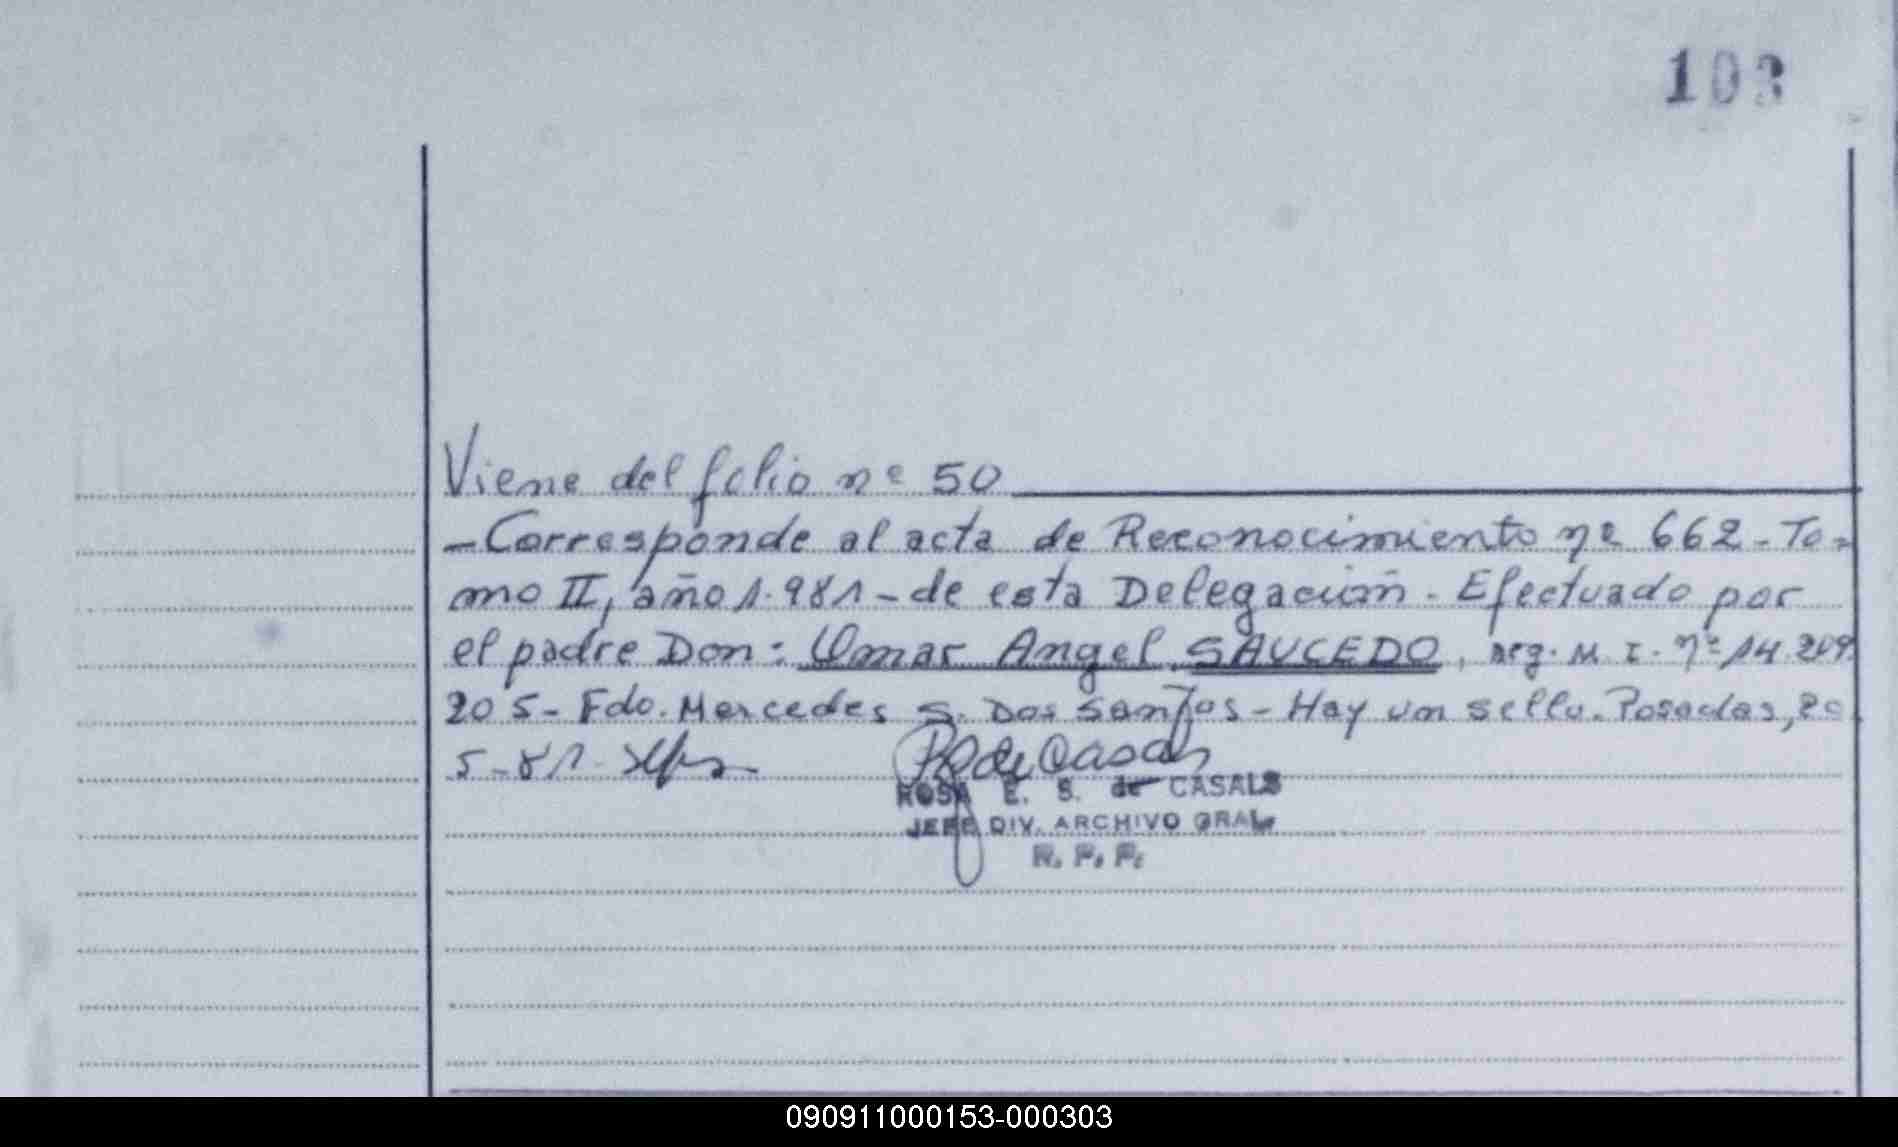 103
Viene del folio nº 50
-Corresponde al acta de Reconocimiento nº 662-To=
mo II, año 1.981-de esta Delegación. Efectuado por
el padre Don: Omar Angel SAUCEDO, arg. M. I. nº 14.209.
205- Fdo. Mercedes S. Dos Santos- Hay un sello. Posadas, 20
5-81.
ROSA E. S. de CASALS
JEFE DIV. ARCHIVO GRAL.
R. P. P.
090911000153-000303